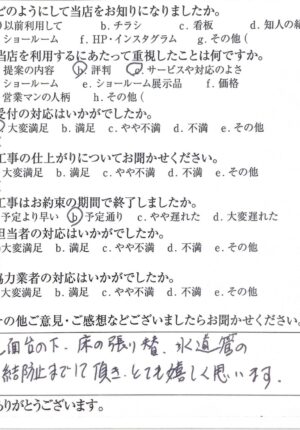 どのようにして当店をお知りになりましたか。
り以前利用して b.チラシ c.看板 d.知人の紹
ショールーム f.HP・インスタグラム g.その他(
当店を利用するにあたって重視したことは何ですか。
提案の内容 b 評判 c.サービスや対応のよさ
ショールーム e.ショールーム展示品 f.価格
営業マンの人柄 h.その他(
受付の対応はいかがでしたか。
大変満足 b.満足 c.やや不満 d.不満 e.その他
工事の仕上がりについてお聞かせください。
大変満足 b.満足 c.やや不満 d.不満 e.その他
工事はお約束の期間で終了しましたか。
予定より早い b 予定通り c.やや遅れた d.大変遅れた
担当者の対応はいかがでしたか。
大変満足 b.満足 c.やや不満 d.不満 e.その他
協力業者の対応はいかがでしたか。
大変満足 b.満足 c.やや不満 d.不満 e.その他
その他ご意見・ご感想などございましたらお聞かせください。
面台の下、床の張り替、水道管の
結防止までして頂き、とても嬉しく思います。
ありがとうございます。